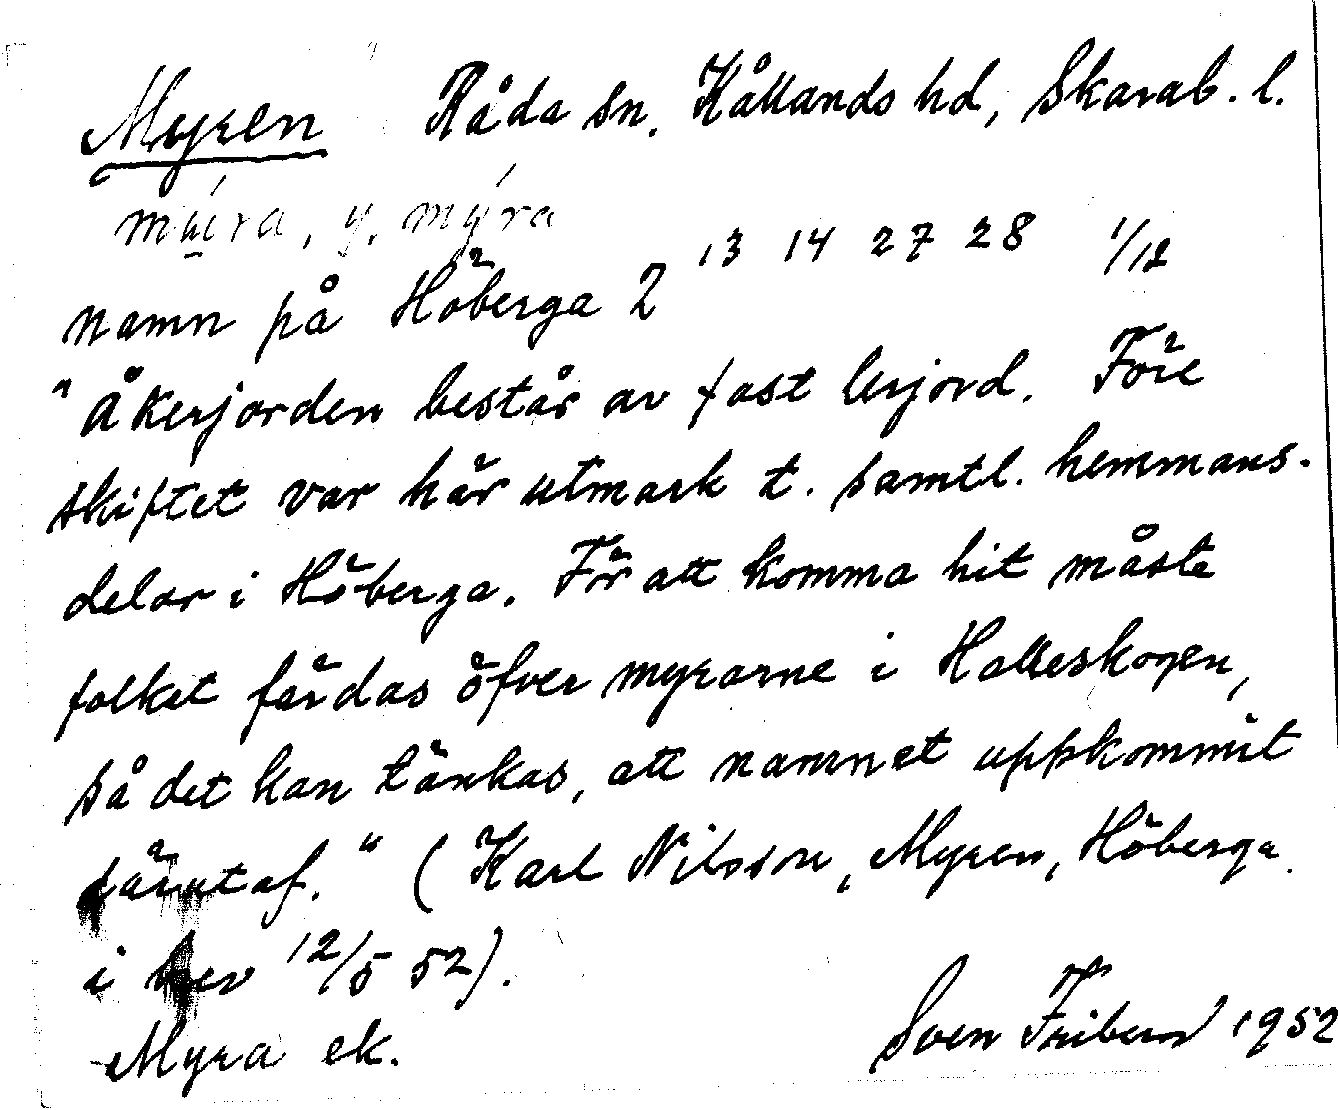 Myren Råda sn. Kållands hd, Skarab. l.
mu̲íra, y. mýra
namn på Höberga 2 13 14 27 28 1/12
"Åkerjorden består av fast lerjord. Före
skiftet var här utmark t. samtl. hemmans-
delar i Höberga. För att komma hit måste
folket färdas öfver myrarne i Halleskogen,
så det kan tänkas, att namnet uppkommit
därutaf." (Karl Nilsson, Myren, Höberga.
i brev 12/5 52).
Myra ek.
Sven Friberg 1952